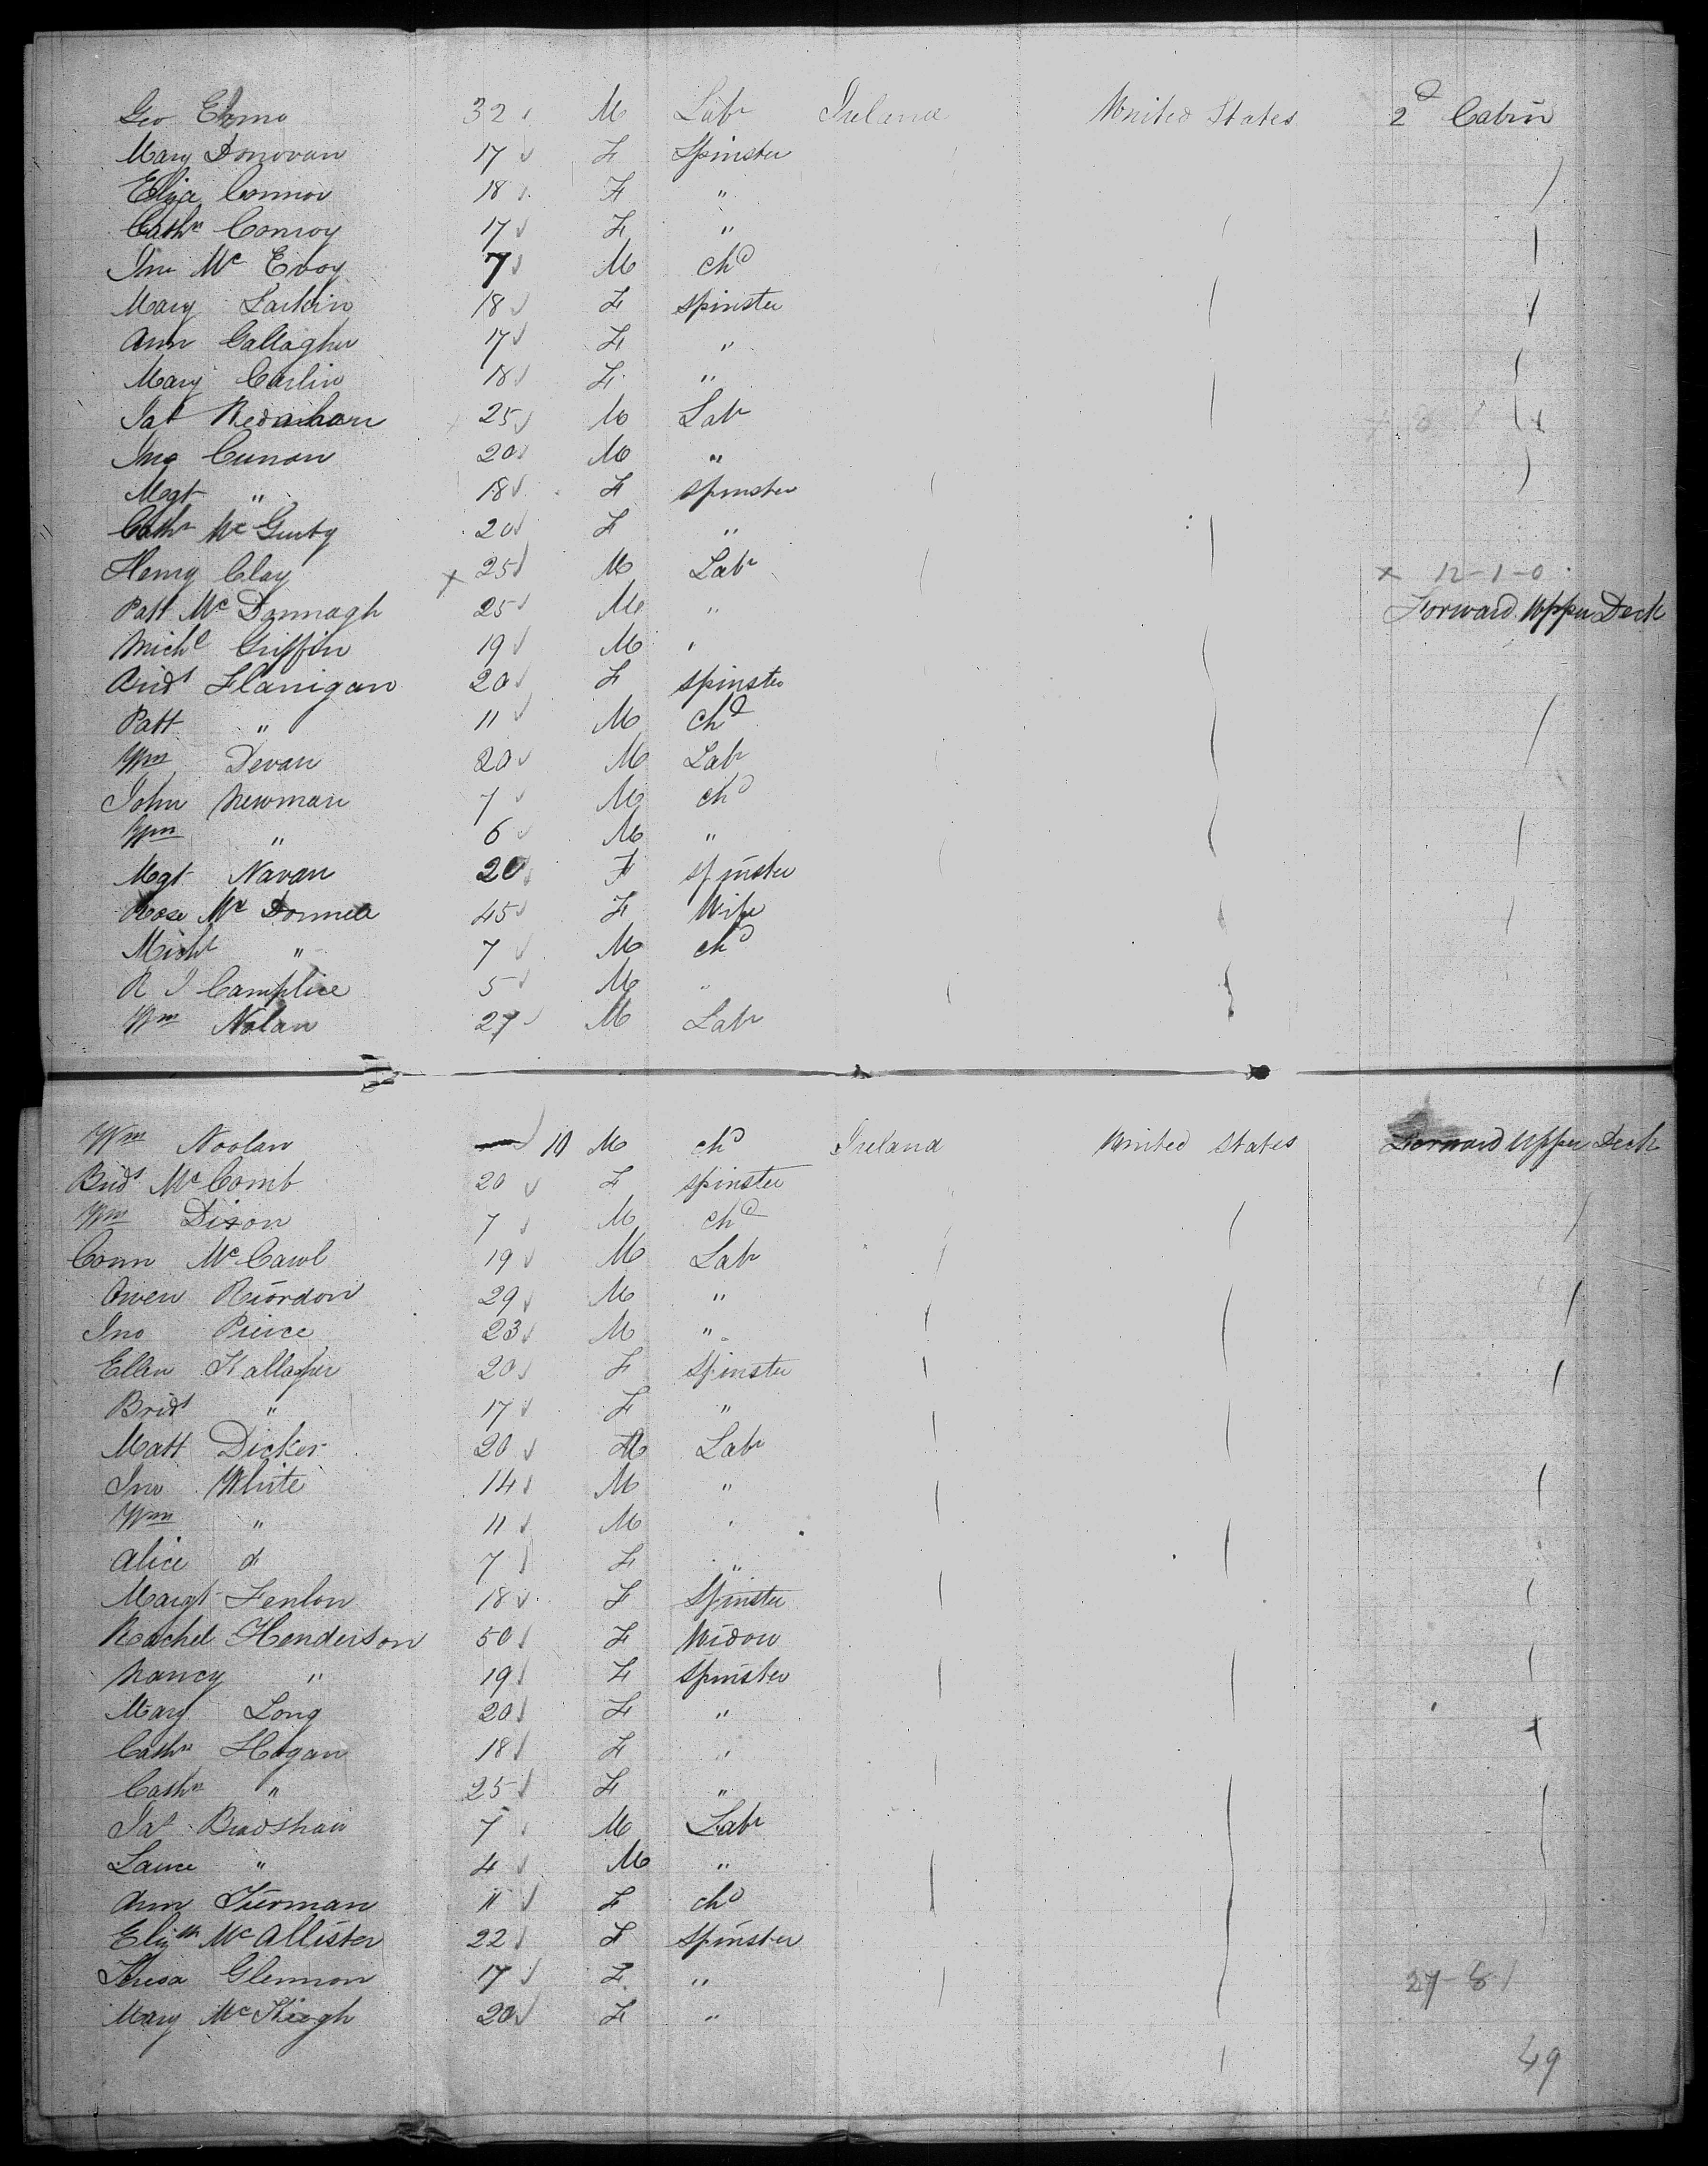 Geo 32 M Labr Ireland United States 2d Cabin
Mary Donovan 17 F Spinster
Eliza Connor 18 F "
Cathn Conroy 17 F "
Jno Mc Evoy 7 M chd
Mary Larkin 18 F spinster
Ann Gallagher 17 F "
Mary Carlin 18 F "
Pat 25 M Labr
Jno Cunan 20 M "
Mgt " 18 F spinster
Cathn Mc Ginty 20 F "
Henry Clay x 25 M Labr x 12-1-0
Patt Mc Donnagh 25 M " Forward Upper Deck
Michl Griffin 19 M "
Bidt Flanigan 20 F spinster
Patt " 11 M chd
Wm Devan 20 M Labr
John Newman 7 M chd
Wm " 6 M "
Mgt Navan 20 F spinster
Rose Mc Donnell 45 F Wife
Michl " 7 M chd
R J Camplice 5 M "
Wm Nolan 27 M Labr
Wm Noolan 10 M chd Ireland United States Forward Upper Deck
Bridt McComb 20 F spinster
Wm Dixon 7 M chd
Conn McCawl 19 M Labr
Owen Riordon 29 M "
Jno Pierce 23 M "
Ellen Kallagher 20 F Spinster
Bridt " 17 F "
Matt Dicker 20 M Labr
Jno White 14 M "
Wm " 11 M "
Alice d 7 F "
Margt Fenlon 18 F Spinster
Rachel Henderson 50 F Widow
Nancy " 19 F Spinster
Mary Long 20 F "
Cathn Hogan 18 F "
Cathn " 25 F "
Pat Bradshaw 7 M Labr
Lance " 4 M "
Ann Tiernan 11 F chd
Elizth McAllister 22 F spinster
Theresa Glennon 17 F " 27-81
Mary McKeogh 20 F "
49